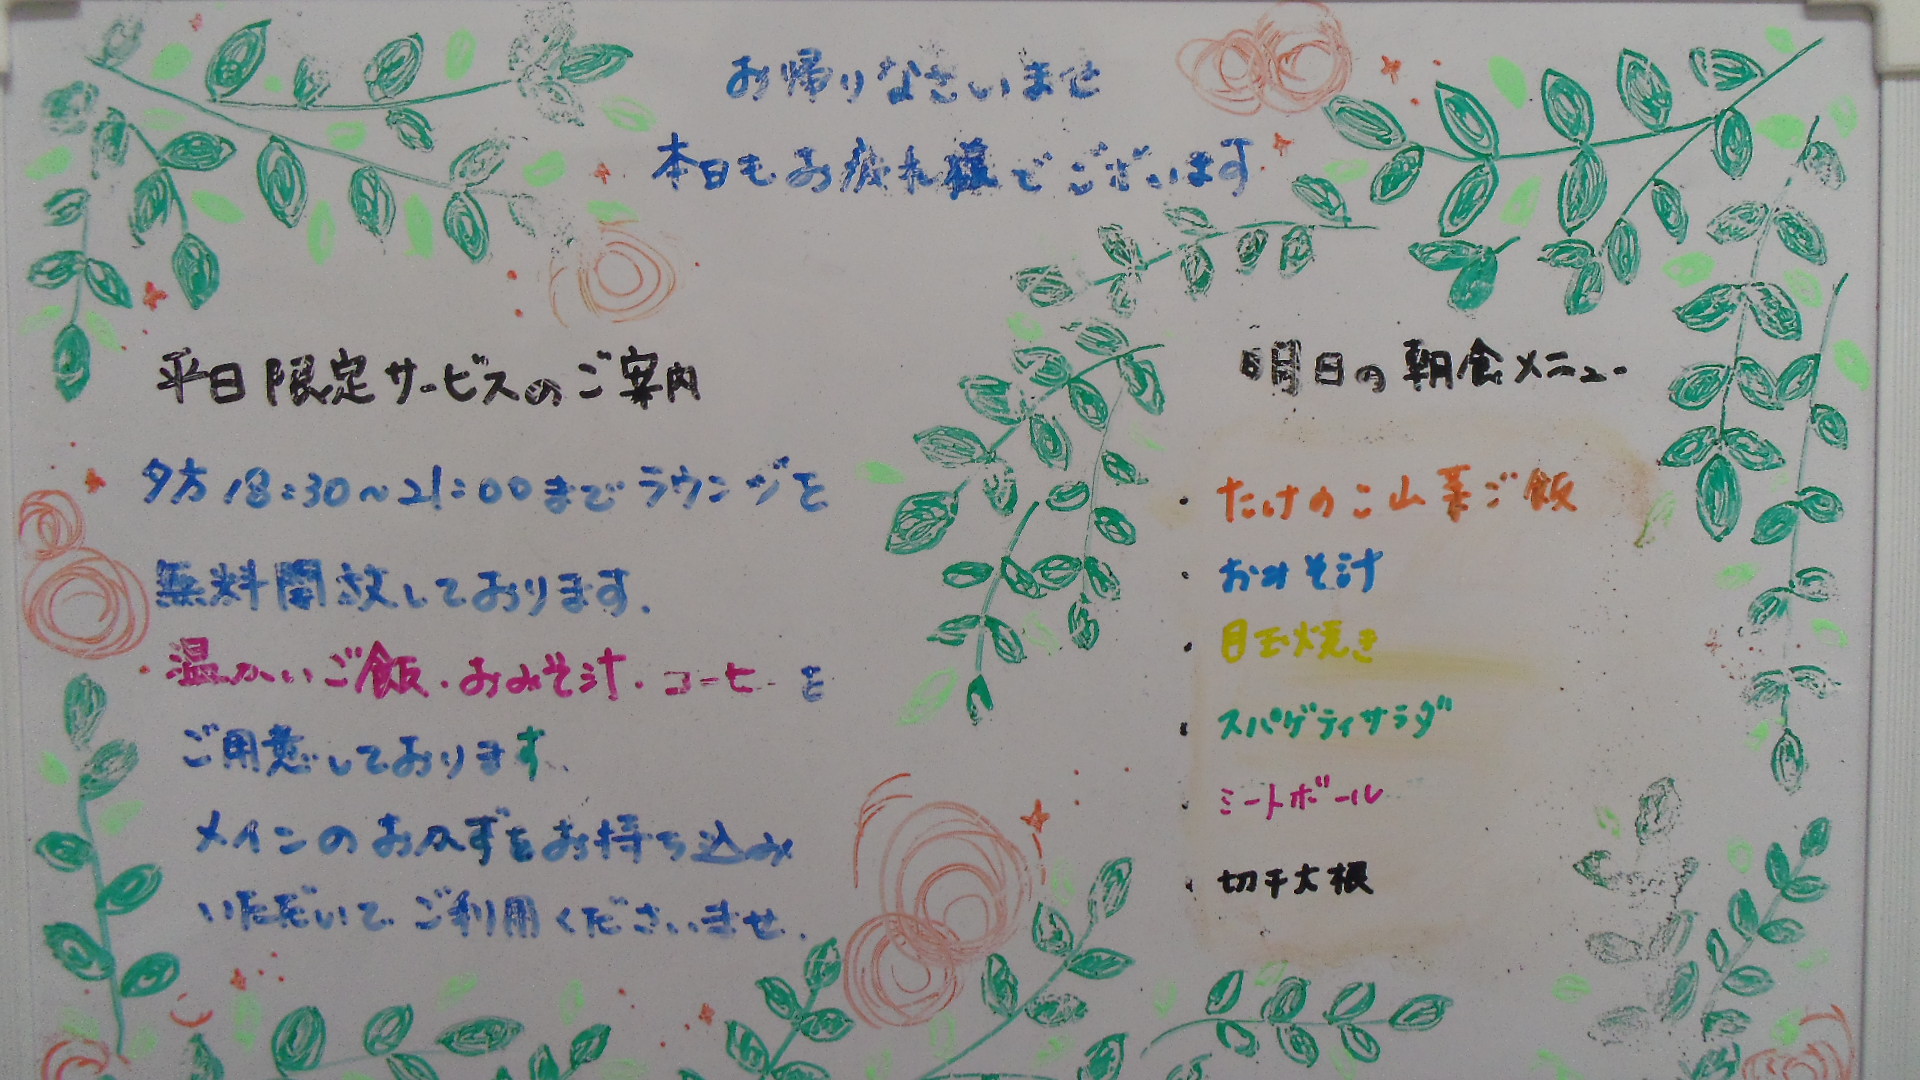 お帰りなさいませ
本日もお疲れ様でございます
平日限定サービスのご案内
夕方18:30~21:00までラウンジを
無料開放しております。
温かいご飯・おみそ汁・コーヒーを
ご用意しております。
メインのおかずをお持ち込み
いただいてご利用くださいませ。
明日の朝食メニュー
・たけのこ山菜ご飯
・おみそ汁
・目玉焼き
・スパゲティサラダ
・ミートボール
・切干大根